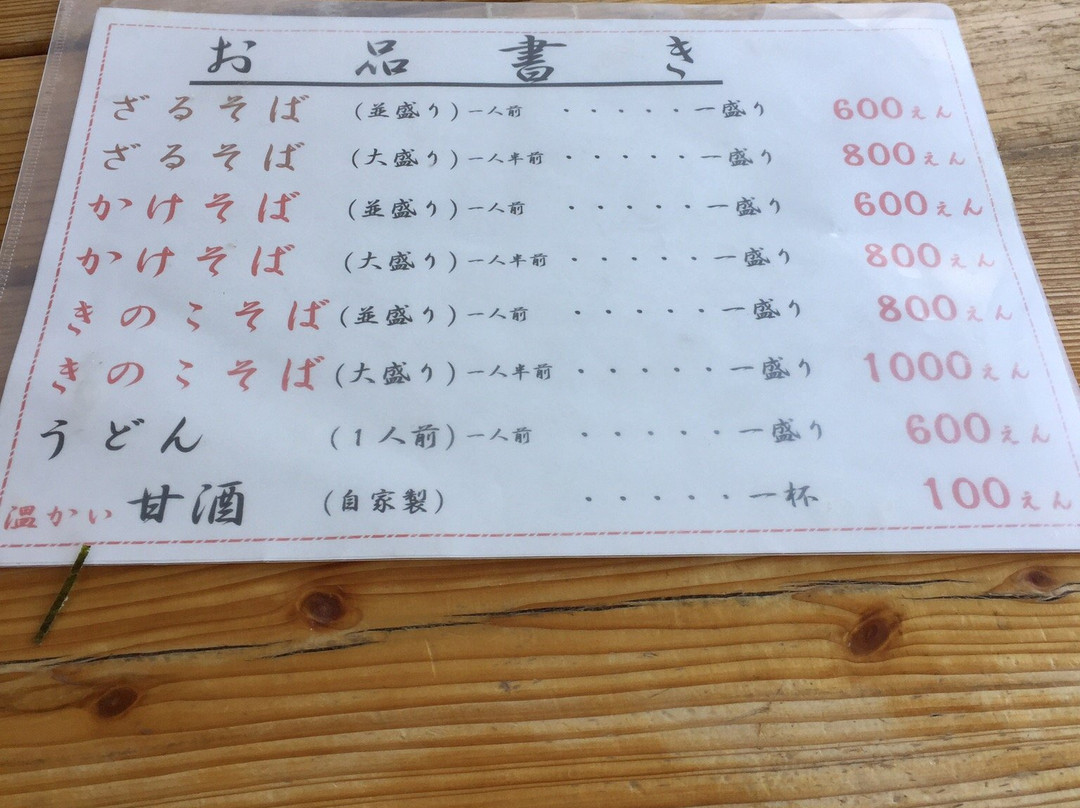 お品書き
ざるそば (並盛り) 一人前 ・・・・・一盛り 600えん
ざるそば (大盛り) 一人半前 ・・・・・一盛り 800えん
かけそば (並盛り) 一人前 ・・・・・一盛り 600えん
かけそば (大盛り) 一人半前 ・・・・・一盛り 800えん
きのこそば (並盛り) 一人前 ・・・・・一盛り 800えん
きのこそば (大盛り) 一人半前 ・・・・・一盛り 1000えん
うどん (1人前) 一人前 ・・・・・一盛り 600えん
温かい 甘酒 (自家製) ・・・・・一杯 100えん